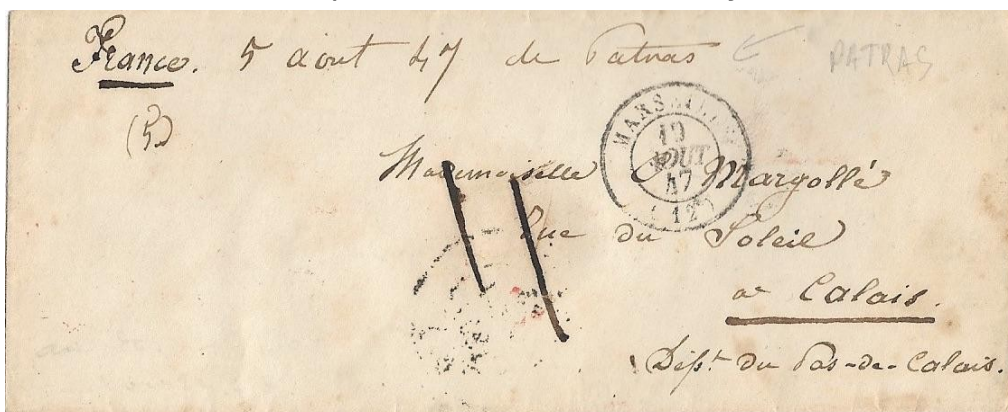 France. 5 aout 47 de Patras
PATRAS
(5)
MARSEILLE
19
AOUT
47
(12)
Mademoiselle Margollé
Rue du Soleil
a Calais.
Dépt. du Pas-de-Calais.